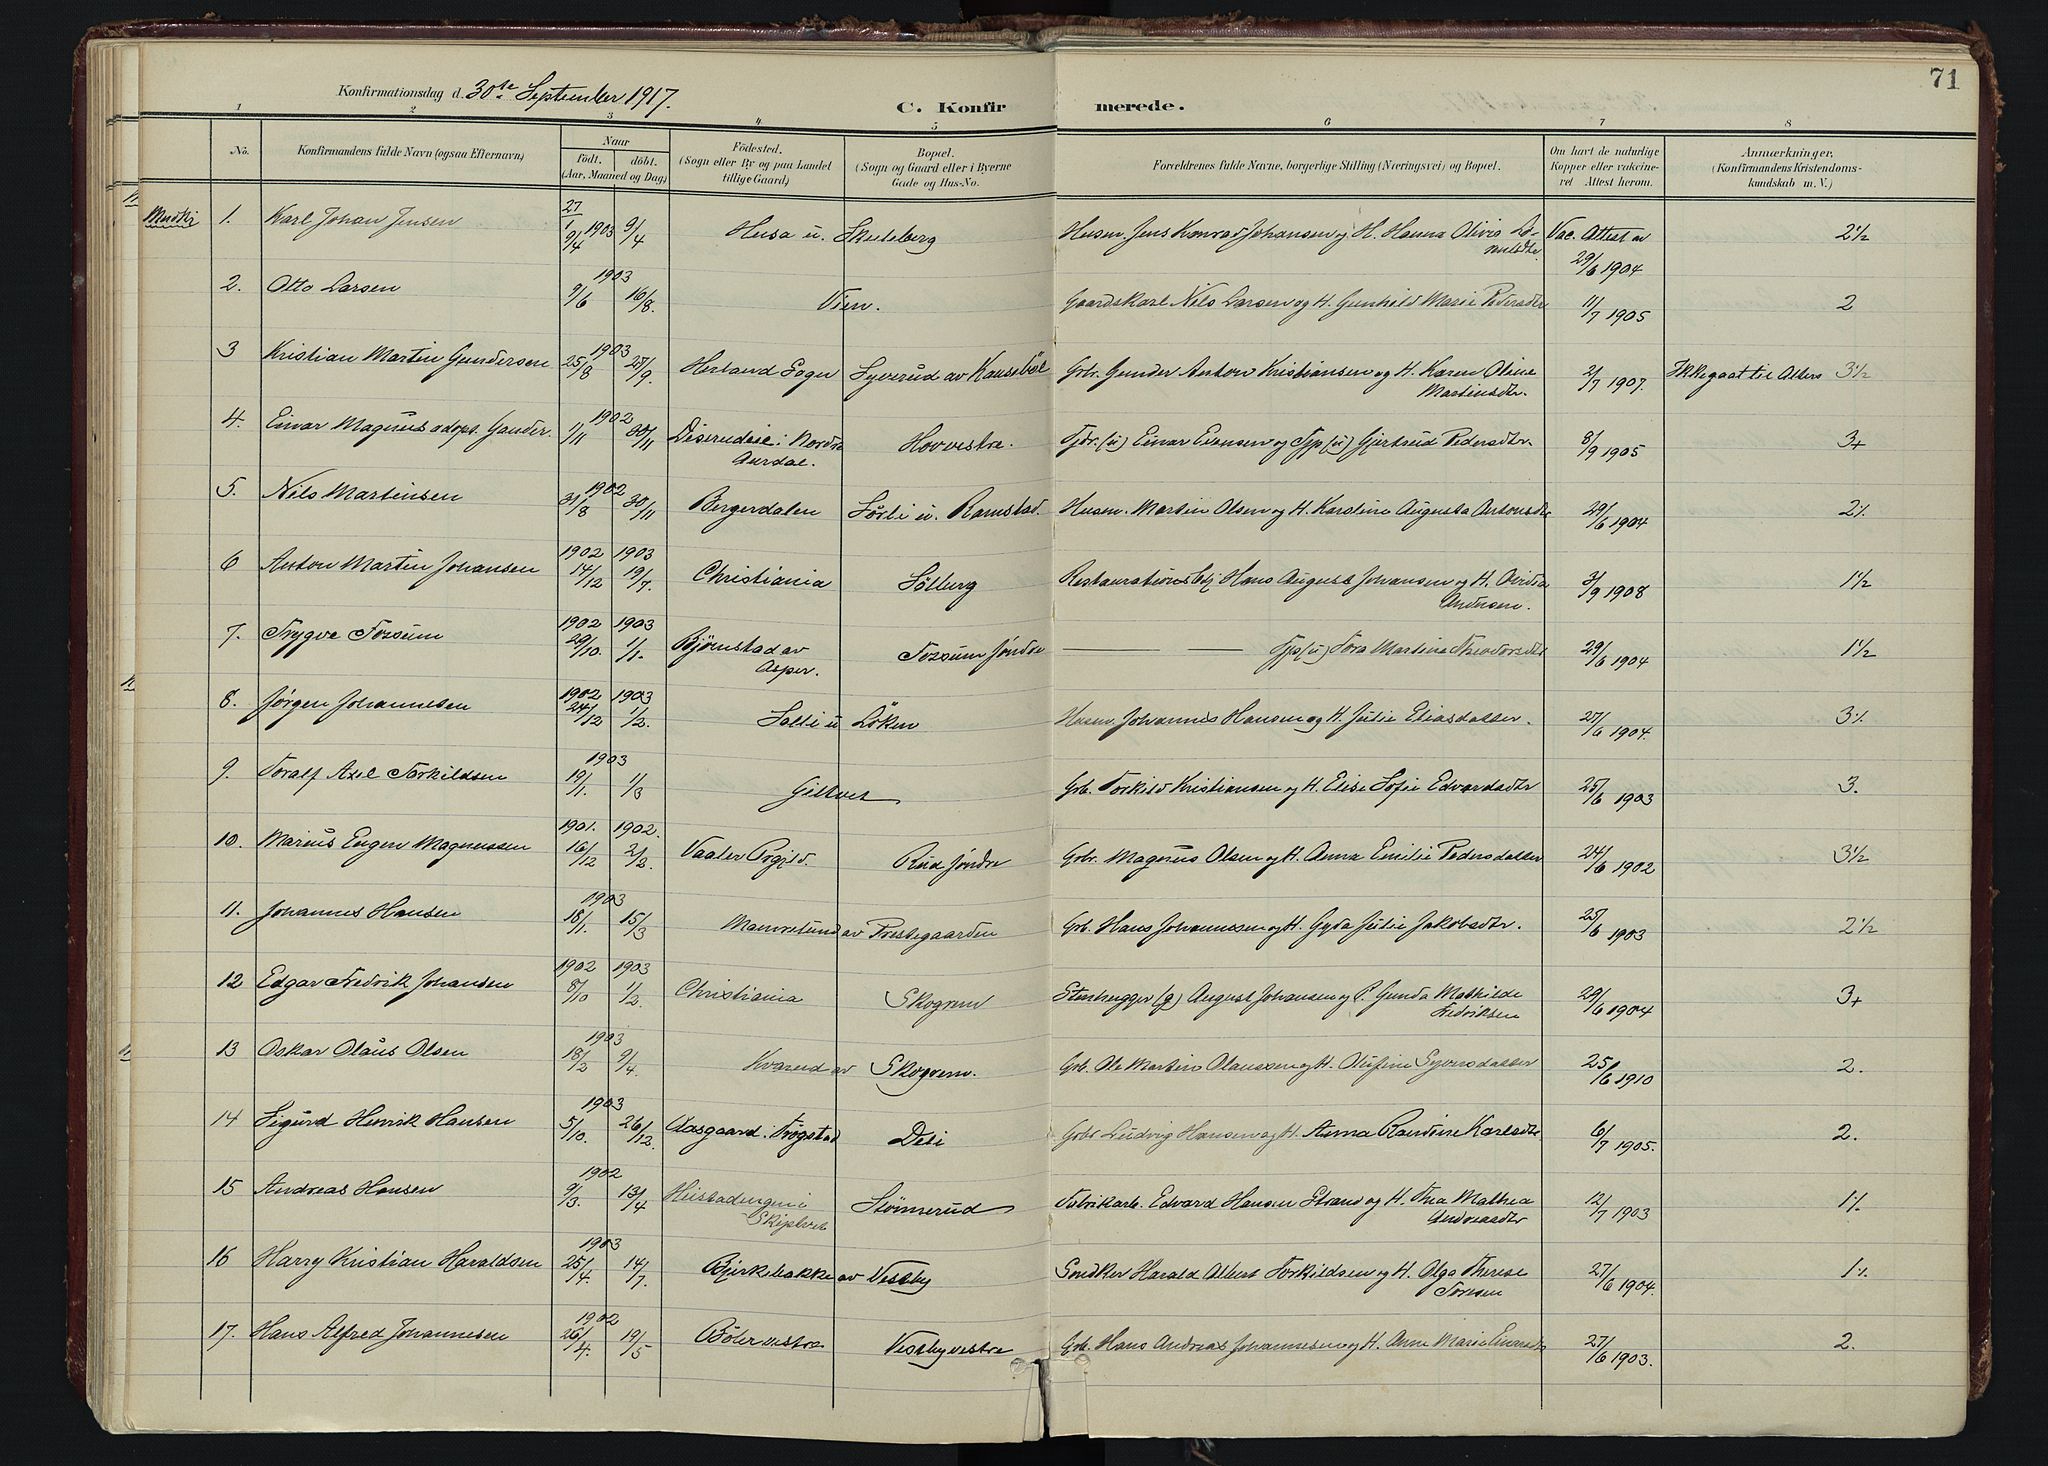 71
Konfirmationsdag d. 30te September 1917.
C. Konfirmerede.
1 2 3 4 5 6 7 8
No. Konfirmandens fulde Navn (ogsaa Efternavn) Naar født. døbt. (Aar, Maaned og Dag) Fødested. (Sogn eller By og paa Landet tillige Gaard) Bopæl. (Sogn og Gaard eller i Byerne Gade og Hus-No. Forældrenes fulde Navne, borgerlige Stilling (Næringsvei) og Bopæl. Om havt de naturlige Kopper eller vaccineret Attest herom. Anmærkninger, (Konfirmandens Kristendomskundskab m. V.)
1. Karl Johan Jensen 1903 9/4 Husa u. Skuleberg Husm. Jens Konrad Johansen og H. Hanna Olivia Vac. Attest av 29/6 1904 2½
2. Otto Larsen 1903 9/6 16/8. Vien. Gaardskarl Nils Larsen og H. Gunhild Marie Pedersdtr 11/7 1905 2
3 Kristian Martin Gundersen 1903 25/8 27/9. Herland Sogn Syverud av Kauseböl Gbr. Gunder Anton Kristiansen og H. Karen Oline Martinsdtr. 2/7 1907. Ikke gaat til Alters 3½
4. Einar Magnus adopt. Gander. 1902 1/11 30/11 Diserudeie i Nordre Aurdal. Hov vestre. Tjdr. (u) Einar Evensen og Tjp (u) Gjertrud Pedersdtr. 8/9 1905 3+
5. Nils Martinsen 1902 31/8 30/11 Bergerdalen Sørli u. Ramstad. Husm. Martin Olsen og H. Karoline Augusta Antonsdtr 29/6 1904 2÷
6 Anton Martin Johansen 1902 14/12 1903 19/7. Christiania Solberg Restaurations bj Hans August Johansen og H. Andersen. 3/9 1908 1½
7. Trygve Fossum 1902 29/10. 1903 1/1. Bjørnstad av Asper. Fossum søndre Tjp (u) Tora Martine Theodorsdtr 29/6 1904 1½
8. Jørgen Johannesen 1902 24/12 1903 1/2. Salli u Løken Husm. Johannes Hansen og H. Julie Eliasdatter. 27/6 1904. 3÷
9. Toralf Axel Torkildsen 1903 19/1. 1/3 Giltvet Gbr. Torkild Kristiansen og H. Elise Sofie Edvardsdtr 25/6 1903 3.
10. Marius Eugen Magnussen 1901. 16/12 1902. 2/2. Vaaler Prgjld. Rud søndre Gbr. Magnus Olsen og H. Anna Emilie Pedersdatter 24/6 1902 3½
11. Johannes Hansen 1903 18/1. 15/3 Mamrelund av Prestegaarden Gbr. Hans Johannssen og H. Gyda Julie Jakobsdtr. 25/6 1903 2½
12 Edgar Fredrik Johansen 1902 8/10 1903 1/2. Christiania Skogrem Stenhugger (g) August Johansen og P. Gunda Mathilde Fredriksen 29/6 1904 3+
13 Oskar Olaus Olsen 1903 18/2 9/4. Kvarud av Skogrem. Gbr. Ole Martin Olaussen og H. Olufine Syversdatter 25/6 1910 2.
14 Sigurd Henrik Hansen 1903 5/10. 26/12. Aasgaard i Trøgstad Deli Gbr Ludvig Hansen og H. Anna Randine Karlsdtr 6/7 1905. 2.
15 Andreas Hansen 1902 9/3. 13/4 Heistadengen i Skiptvet Stømnerud Fabrikarb. Edvard Hansen Strand og H. Thea Mathea Andreasdtr 12/7 1903 1÷
16 Harry Kristian Haraldsen 1903 25/4. 14/7. Bjerkebakke av Vestby Snedker Harald Albert Torkildsen og H. Olga Therese Toresen 27/6 1904. 1÷
17. Hans Alfred Johannesen 1902 26/4. 19/5 Böler vestre Vestby vestre Gbr. Hans Andreas Johannesen og H. Anne Marie Einarsdtr 27/6 1903. 2.